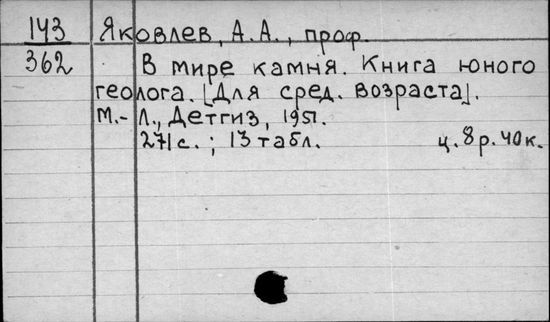 143 Яковлев, А.А., проф.
362 В мире камня. Книга юного
геолога. [Для сред. возраста].
М.-Л., Детгиз, 1951.
271 с. ; 13 табл. ц. 8 р. 40 к.